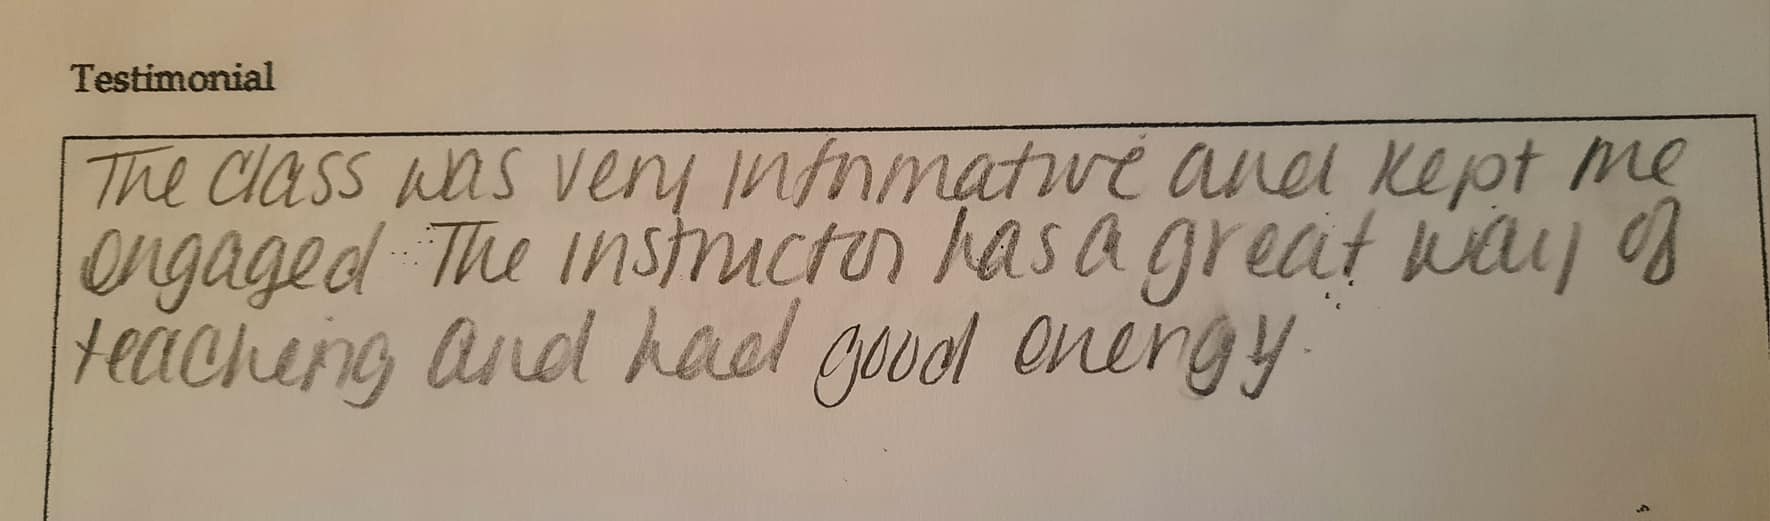 Testimonial
The class was very informative and kept me
engaged. The instructor has a great way of
teaching and had good energy.